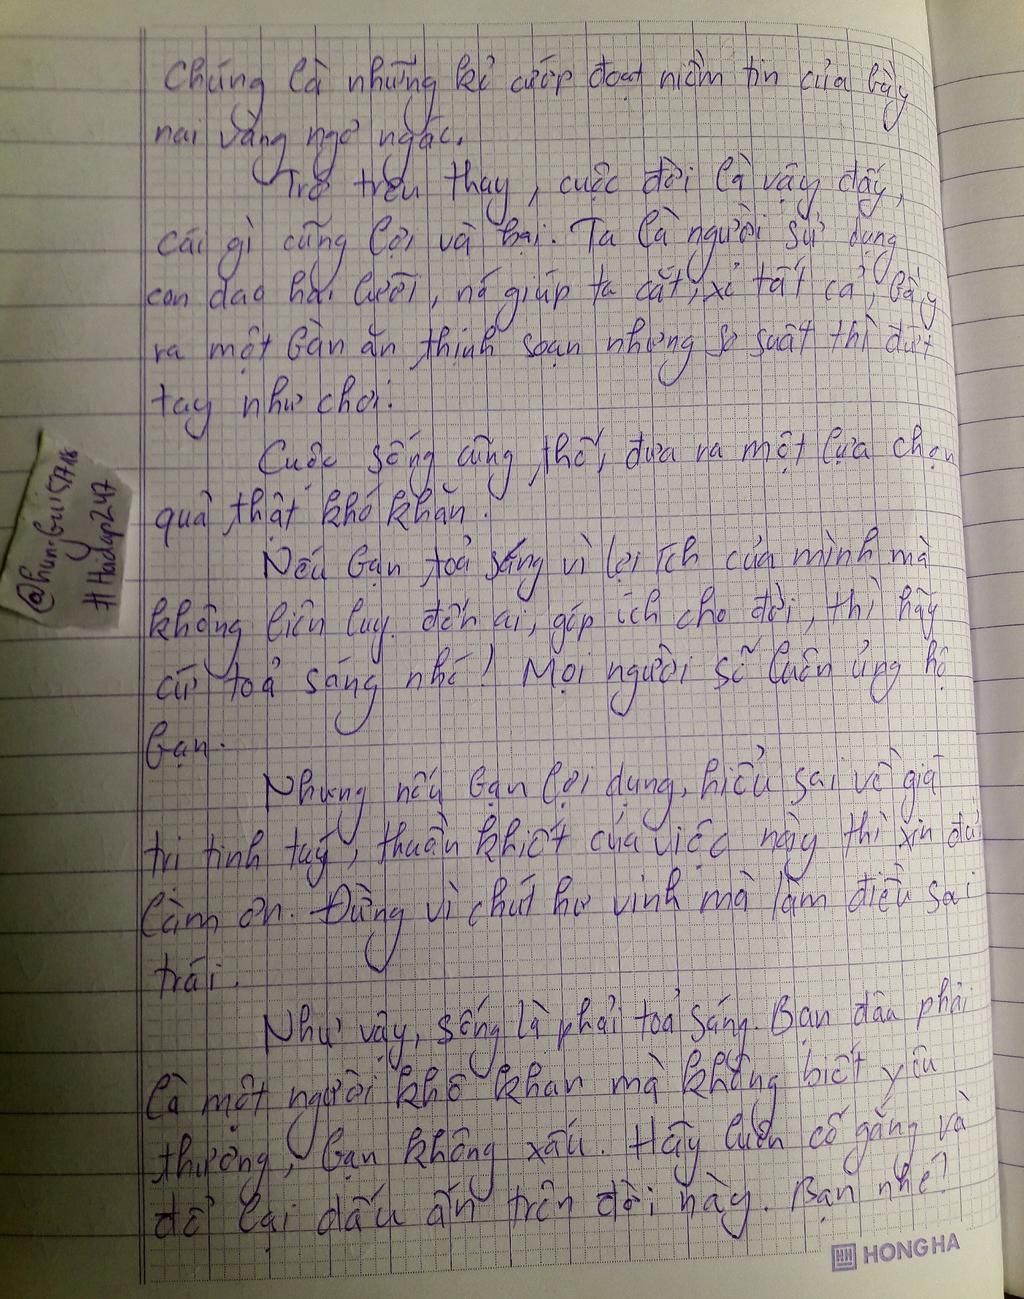 Chúng là những kẻ cướp đoạt niềm tin của bầy
nai vàng ngơ ngác.
Trớ trêu thay, cuộc đời là vậy đấy,
cái gì cũng lợi và hại. Ta là người sử dụng
con dao hai lưỡi, nó giúp ta cắt, xẻ tất cả, bày
ra một bàn ăn thịnh soạn nhưng sơ suất thì đứt
tay như chơi.
Cuộc sống cũng thế, đưa ra một lựa chọn
quả thật khó khăn.
Nếu bạn toả sáng vì lợi ích của mình mà
không liên luỵ đến ai, góp ích cho đời, thì hãy
cứ toả sáng nhé! Mọi người sẽ luôn ủng hộ
bạn.
Nhưng nếu bạn lợi dụng, hiểu sai về giá
trị tinh tuý, thuần khiết của việc này thì xin đừng
làm ơn. Đừng vì chút hư vinh mà làm điều sai
trái.
Như vậy, sống là phải toả sáng. Bạn đâu phải
là một người khô khan mà không biết yêu
thương, bạn không xấu. Hãy luôn cố gắng và
để lại dấu ấn trên đời này. Bạn nhé?
HONG HA
#Hoidap247